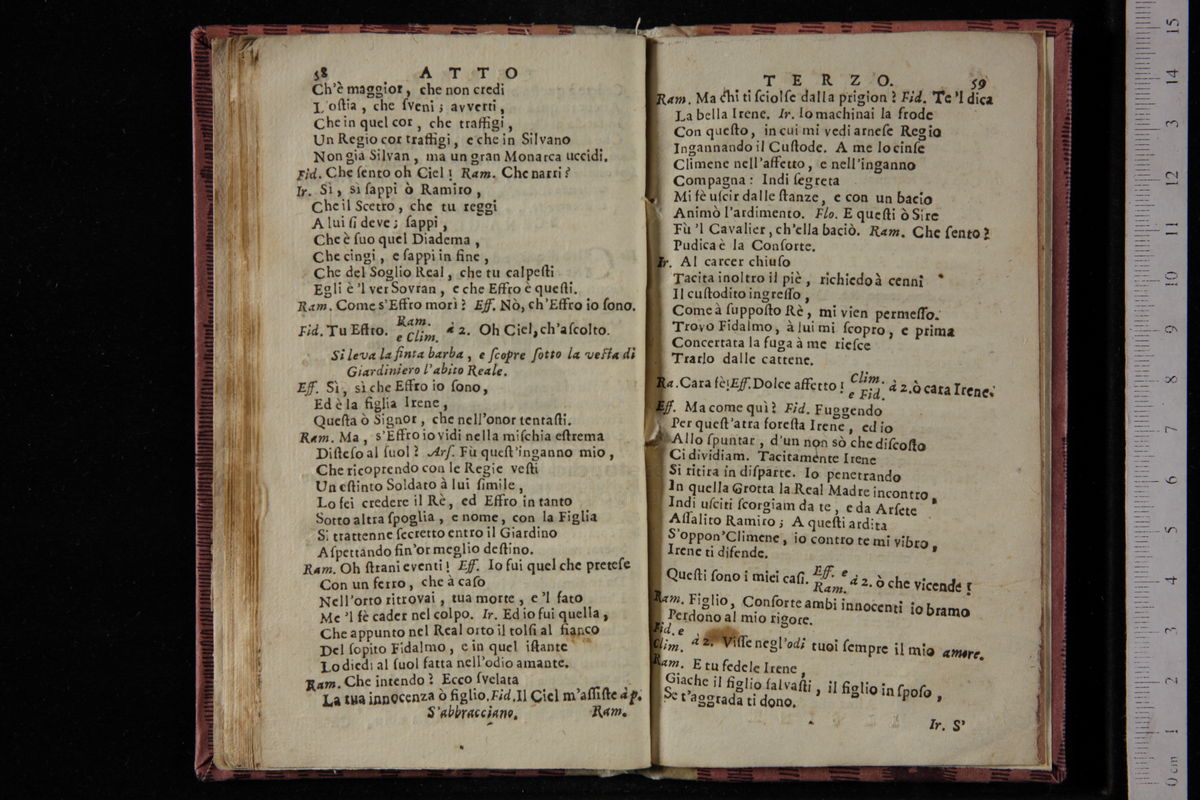 58 ATTO
Ch'è maggior, che non credi
L'ostia, che sveni; avverti,
Che in quel cor, che traffigi,
Un Regio cor traffigi, e che in Silvano
Non già Silvan, ma un gran Monarca uccidi.
Fid. Che sento oh Ciel! Ram. Che narri?
Ir. Sì, sì sappi ò Ramiro,
Che il Scetro, che tu reggi
A lui si deve; sappi,
Che è suo quel Diadema,
Che cingi, e sappi in fine,
Che del Soglio Real, che tu calpesti
Egli è 'l ver Sovran, e che Effro è questi.
Ram. Come s'Effro morì? Eff. Nò, ch'Effro io sono.
Fid. Tu Effro. Ram. e Clim. à 2. Oh Ciel, ch'ascolto.
Si leva la finta barba, e scopre sotto la vesta di
Giardiniero l'abito Reale.
Eff. Sì, sì che Effro io sono,
Ed è la figlia Irene,
Questa ò Signor, che nell'onor tentasti.
Ram. Ma, s'Effro io vidi nella mischia estrema
Disteso al suol? Ars. Fù quest'inganno mio,
Che ricoprendo con le Regie vesti
Un estinto Soldato à lui simile,
Lo fei credere il Rè, ed Effro in tanto
Sotto altra spoglia, e nome, con la Figlia
Si trattenne secretto entro il Giardino
Aspettando fin'or meglio destino.
Ram. Oh strani eventi! Eff. Io fui quel che pretese
Con un ferro, che à caso
Nell'orto ritrovai, tua morte, e 'l fato
Me 'l fè cader nel colpo. Ir. Ed io fui quella,
Che appunto nel Real orto il tolsi al fianco
Del sopito Fidalmo, e in quel istante
Lo diedi al suol fatta nell'odio amante.
Ram. Che intendo? Ecco svelata
La tua innocenza ò figlio. Fid. Il Ciel m'assiste à p.
S'abbracciano. Ram.
TERZO. 59
Ram. Ma chi ti sciolse dalla prigion? Fid. Te 'l dica
La bella Irene. Ir. Io machinai la frode
Con questo, in cui mi vedi arnese Regio
Ingannando il Custode. A me lo cinse
Climene nell'affetto, e nell'inganno
Compagna: Indi segreta
Mi fè uscir dalle stanze, e con un bacio
Animò l'ardimento. Flo. E questi ò Sire
Fù 'l Cavalier, ch'ella baciò. Ram. Che sento?
Pudica è la Consorte.
Ir. Al carcer chiuso
Tacita inoltro il piè, richiedo à cenni
Il custodito ingresso,
Come à supposto Rè, mi vien permesso.
Trovo Fidalmo, à lui mi scopro, e prima
Concertata la fuga à me riesce
Trarlo dalle cattene.
Ra. Cara fè! Eff. Dolce affetto! Clim. e Fid. à 2. ò cara Irene.
Eff. Ma come quì? Fid. Fuggendo
Per quest'atra foresta Irene, ed io
Allo spuntar, d'un non sò che discosto
Ci dividiam. Tacitamente Irene
Si ritira in disparte. Io penetrando
In quella Grotta la Real Madre incontro,
Indi usciti scorgiam da te, e da Arsete
Assalito Ramiro; A questi ardita
S'oppon' Climene, io contro te mi vibro,
Irene ti difende.
Questi sono i miei casi. Eff. e Ram. à 2. ò che vicende!
Ram. Figlio, Consorte ambi innocenti io bramo
Perdono al mio rigore.
Fid. e Clim. à 2. Visse negl'odi tuoi sempre il mio amore.
Ram. E tu fedele Irene,
Giache il figlio salvasti, il figlio in sposo,
Se t'aggrada ti dono.
Ir. S'